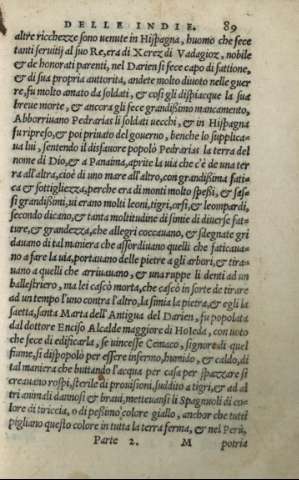 DELLE INDIE. 89
altre ricchezze sono uenute in Hispagna, huomo che fece
tanti seruitij al suo Re, era di Xerez di Vadagioz, nobile
& de honorati parenti, nel Darien si fece capo di fattione,
& di sua propria autorita, andete molto diuoto nelle guer
re, fu molto amato da soldati, & cosi gli dispiacque la sua
breue morte, & ancora gli fece grandissimo mancamento,
Abborriuano Pedrarias li soldati uecchi, & in Hispagna
fu ripreso, & poi priuato del gouerno, benche lo supplica-
ua lui, sentendo il disfauore popolò Pedrarias la terra del
nome di Dio, & a Panama, aprite la uia che c'è da une ter
ra all'altra, cioè di uno mare all'altro, con grandissima fati
ca & sottigliezza, perche era di monti molto spessi, & sas-
si grandissimi, ui erano molti leoni, tigri, orsi, & leompardi,
secondo dicano, & tanta moltitudine di simie di diuerse fat
ture, & grandezza, che allegri coccauano, & sdegnate gri
dauano di tal maniera che assordiuano quelli che faticaua-
no a fare la uia, portauano delle pietre a gli arbori, & tira-
uano a quelli che arriuauano, & una ruppe li denti ad un
ballestriero, ma lei cascò morta, che cascò in sorte de tirare
ad un tempo l'uno contra l'altro, la simia la pietra, & egli la
saetta, santa Marta dell'Antigua del Darien, fu popolata
dal dottore Enciso Alcalde maggiore di Hoieda, con uoto
che fece di edificarla, se uincesse Cemaco, signore di quel
fiume, si dispopolò per essere infermo, humido, & caldo, di
tal maniera che buttando l'acqua per casa per spazzare si
creauano rospi, sterile di prouisioni, suddito a tigri, & ad al
tri animali dannosi & braui, metteuansi li Spagnuoli di co-
lore di tiriccia, o di pessimo colore giallo, anchor che tutti
pigliano questo colore in tutta la terra ferma, & nel Perù,
Parte 2. M potria